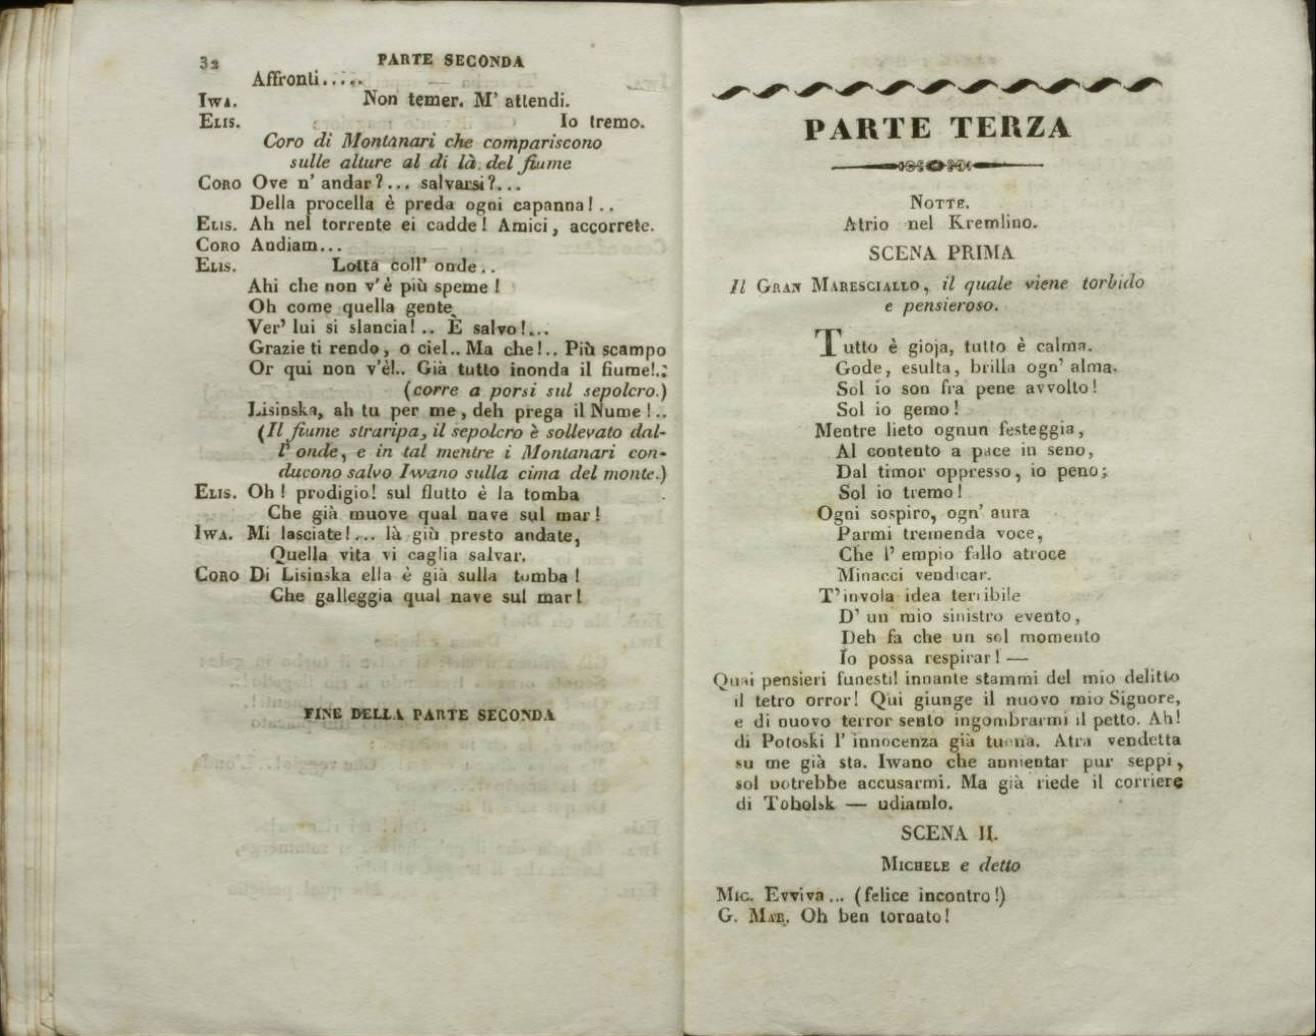 32 PARTE SECONDA
Affronti.....
Iwa. Non temer. M' attendi.
Elis. Io tremo.
Coro di Montanari che compariscono
sulle alture al di là del fiume
Coro Ove n' andar?... salvarsi?...
Della procella è preda ogni capanna!..
Elis. Ah nel torrente ei cadde! Amici, accorrete.
Coro Andiam...
Elis. Lotta coll' onde..
Ahi che non v'è più speme!
Oh come quella gente
Ver' lui si slancia!.. È salvo!...
Grazie ti rendo, o ciel.. Ma che!.. Più scampo
Or qui non v'è!.. Già tutto inonda il fiume!..
(corre a porsi sul sepolcro.)
Lisinska, ah tu per me, deh prega il Nume!..
(Il fiume straripa, il sepolcro è sollevato dal-
l' onde, e in tal mentre i Montanari con-
ducono salvo Iwano sulla cima del monte.)
Elis. Oh! prodigio! sul flutto è la tomba
Che già muove qual nave sul mar!
Iwa. Mi lasciate!... là giù presto andate,
Quella vita vi caglia salvar.
Coro Di Lisinska ella è già sulla tomba!
Che galleggia qual nave sul mar!
FINE DELLA PARTE SECONDA
PARTE TERZA
Notte.
Atrio nel Kremlino.
SCENA PRIMA
Il Gran Maresciallo, il quale viene torbido
e pensieroso.
Tutto è gioja, tutto è calma.
Gode, esulta, brilla ogn' alma.
Sol io son fra pene avvolto!
Sol io gemo!
Mentre lieto ognun festeggia,
Al contento a pace in seno,
Dal timor oppresso, io peno;
Sol io tremo!
Ogni sospiro, ogn' aura
Parmi tremenda voce,
Che l' empio fallo atroce
Minacci vendicar.
T'invola idea terribile
D' un mio sinistro evento,
Deh fa che un sol momento
Io possa respirar! —
Quai pensieri funesti! innante stammi del mio delitto
il tetro orror! Qui giunge il nuovo mio Signore,
e di nuovo terror sento ingombrarmi il petto. Ah!
di Potoski l' innocenza già tuona. Atra vendetta
su me già sta. Iwano che annientar pur seppi,
sol potrebbe accusarmi. Ma già riede il corriere
di Tobolsk — udiamlo.
SCENA II.
Michele e detto
Mic. Evviva... (felice incontro!)
G. Mar. Oh ben tornato!